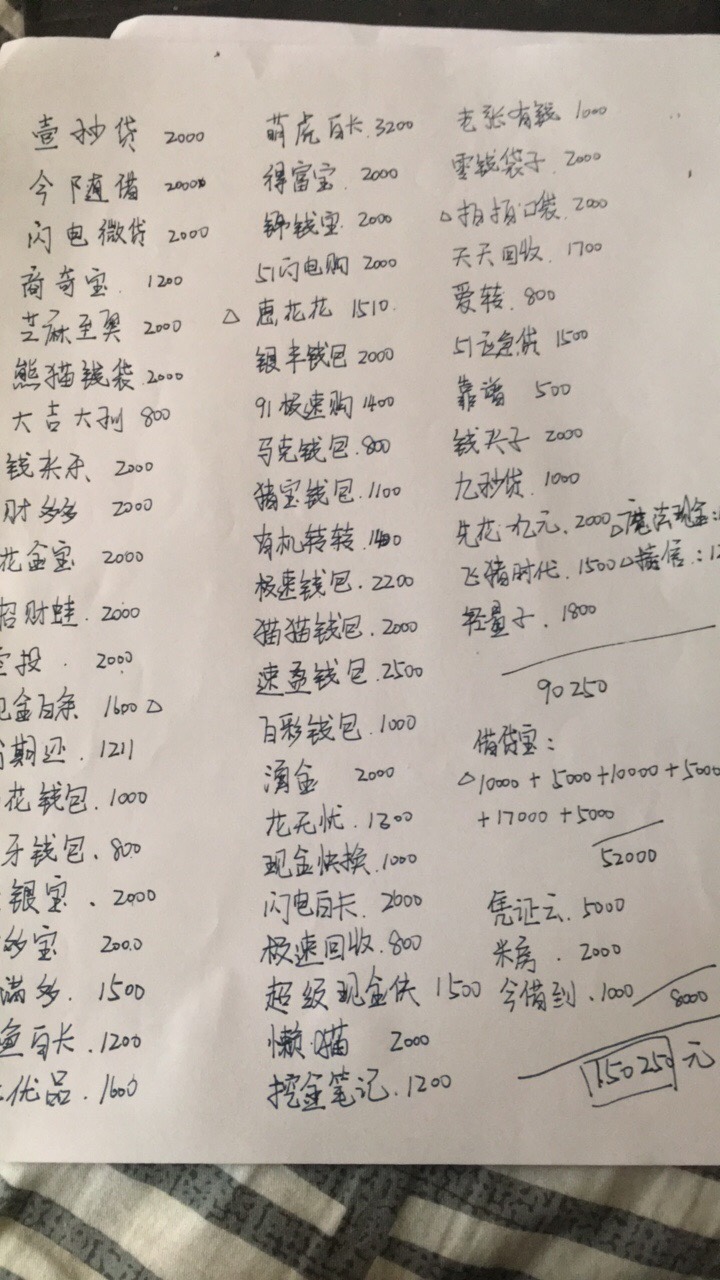 壹秒贷 2000
今随借 2000
闪电微贷 2000
商奇宝. 1200
芝麻至奥 2000
熊猫钱袋 2000
大吉大利 800
钱来乐 2000
财多多 2000
花金宝 2000
招财蛙. 2000
投. 2000
金白条 1600△
期还. 1211
花钱包. 1000
牙钱包. 800
银宝. 2000
多宝 2000
满多. 1500
鱼白卡. 1200
优品. 1600
萌虎白卡. 3200
得富宝. 2000
锦钱宝. 2000
51闪电购 2000
△惠花花 1510.
银丰钱包 2000
91极速购 1400
马克钱包. 800
猪宝钱包. 1100
有机转转. 1400
极速钱包. 2200
猫猫钱包. 2000
速盈钱包. 2500
百彩钱包. 1000
涌金 2000
花无忧. 1300
现金快换. 1000
闪电白卡. 2000
极速回收. 800
超级现金侠 1500
懒猫 2000
挖金笔记. 1200
老张有钱 1000
零钱袋子. 2000
△拍拍口袋. 2000
天天回收. 1700
爱转. 800
51应急贷 1500
靠谱 500
钱夹子 2000
九秒贷. 1000
先花一亿元. 2000 △魔法现金:
飞猪时代. 1500 △ 信. :
轻量子. 1800
90250
借贷宝:
△10000+5000+10000+5000
+17000+5000
52000
凭证云. 5000
米房. 2000
今借到. 1000
8000
150250元